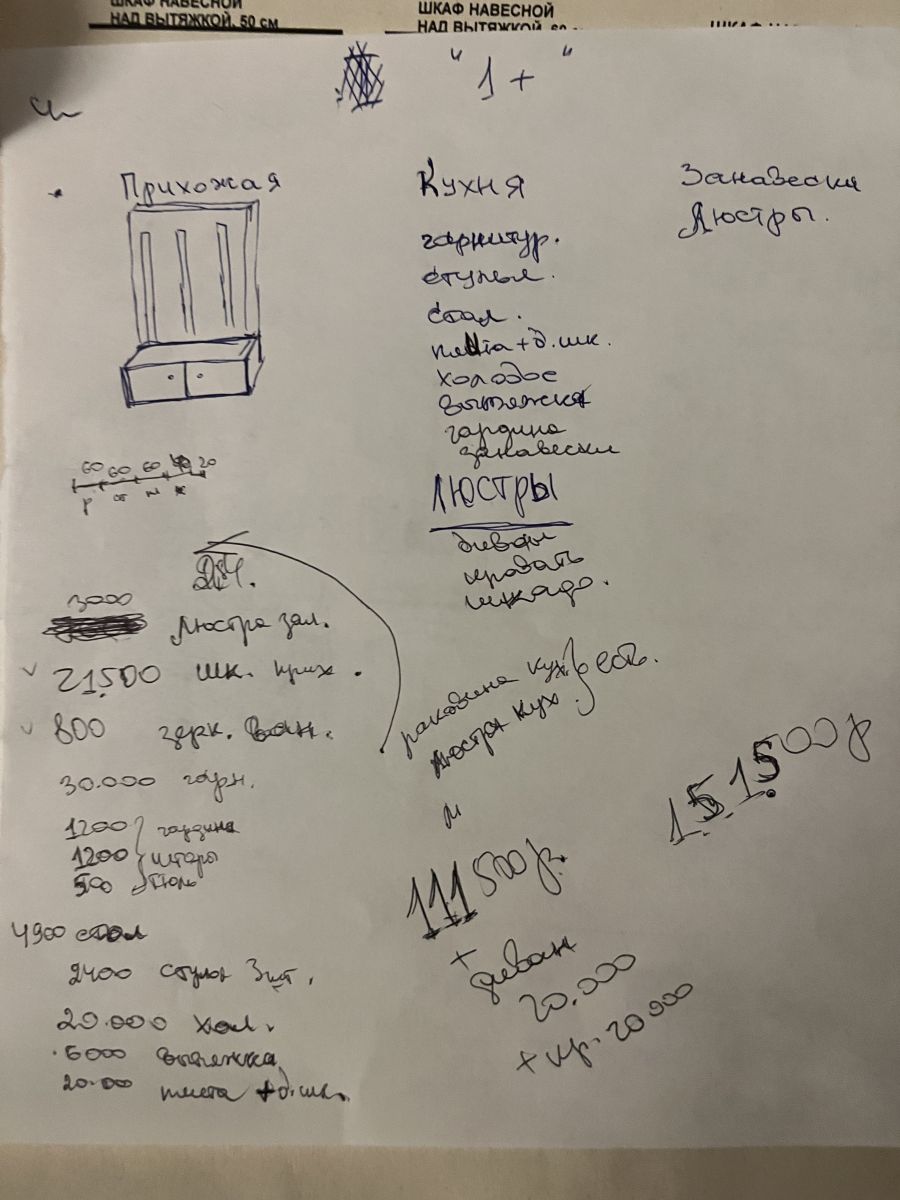 ШКАФ НАВЕСНОЙ
НАД ВЫТЯЖКОЙ, 50 СМ
ШКАФ НАВЕСНОЙ
НАД ВЫТЯЖКОЙ, 60
"1+"
Прихожая
60 60 60 20
Кухня
гарнитур.
стулья.
стол.
плита+д.шк.
холодос
вытяжка
гардина
занавески
ЛЮСТРЫ
диван
кровать
шкаф.
Занавески
Люстры.
3000 Люстра зал.
21.500 шк. прих.
800 зерк. ван.
30.000 гарн.
1200 гардина
1200 шторы
500 тюль
4900 стол
2400 стулья 3шт.
20.000 хол.
6000 вытяжка
20.000 плита +д.шк.
раковина кух.
люстра кух.
есть.
111 500 р.
+
диван
20.000
+ кр. 20 000
151.500 р